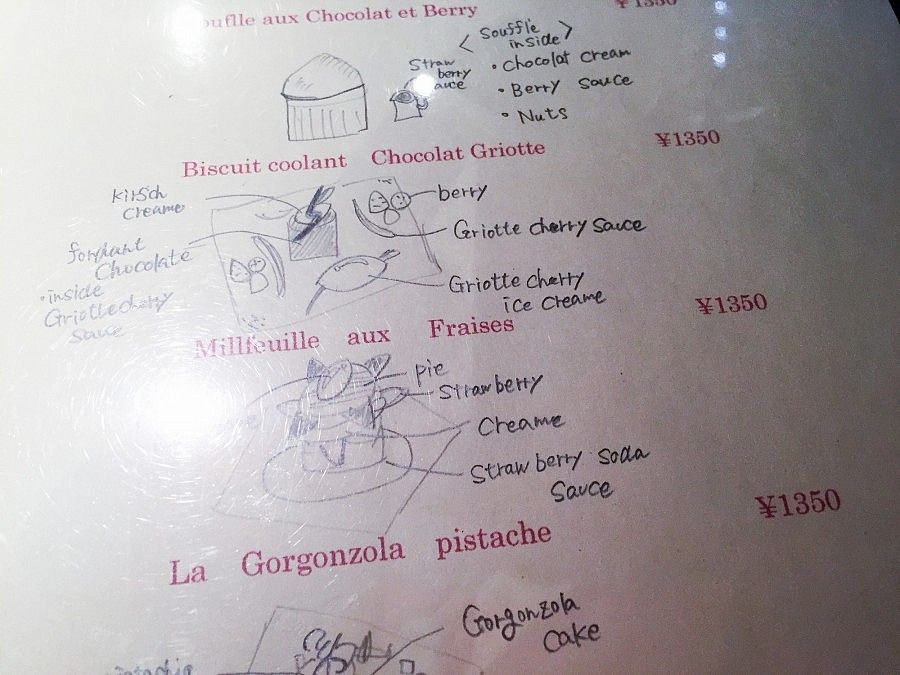 aux Chocolat et Berry ¥1350
< Soufflé
inside >
• Chocolat cream
• Berry sauce
• Nuts
Straw
berry
auce
Biscuit coolant Chocolat Griotte ¥1350
kirsch
creame
Chocolate
• inside
Griotte cherry
sauce
berry
Griotte cherry sauce
Griotte cherry
ice creame
Millfeuille aux Fraises ¥1350
pie
Strawberry
Creame
Strawberry soda
sauce
La Gorgonzola pistache ¥1350
Gorgonzola
cake